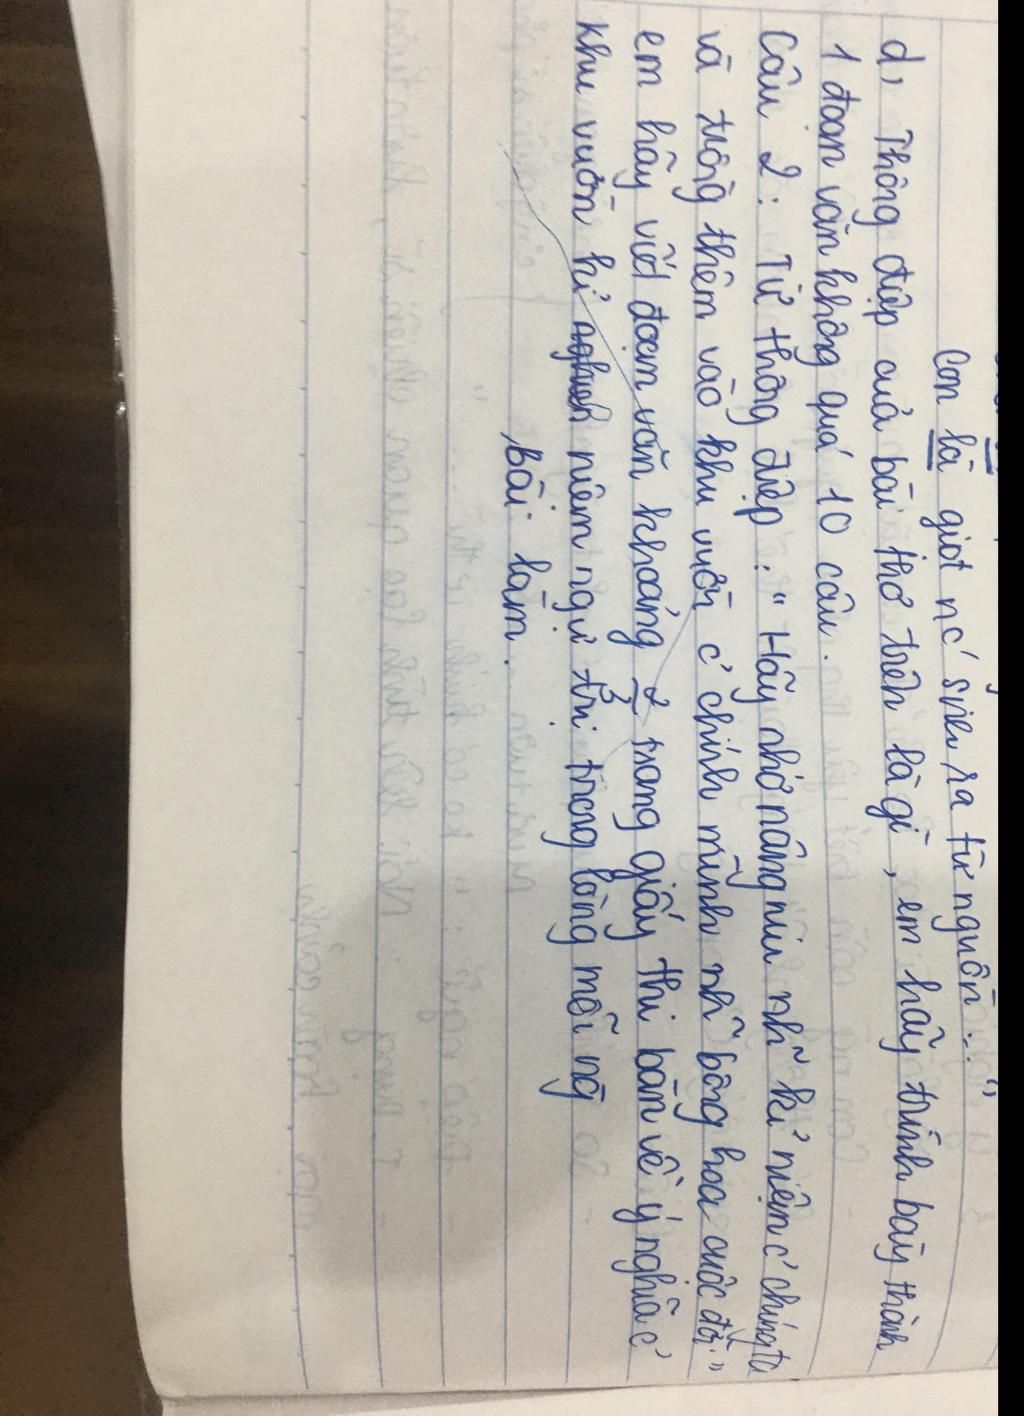 Con là giọt nc' sinh ra từ nguồn..."
d, Thông điệp của bài thơ trên là gì, em hãy trình bày thành
1 đoạn văn không quá 10 câu.
Câu 2: Từ thông điệp: " Hãy nhớ nâng niu nh~ kỉ niệm c' chúng ta
và trồng thêm vào khu vườn c' chính mình nh~ bông hoa cuộc đời."
em hãy viết đoạn văn khoảng 2/3 trang giấy thi bàn về ý nghĩa c'
khu vườn kỉ niệm ngự trị trong lòng mỗi ng'
Bài làm.